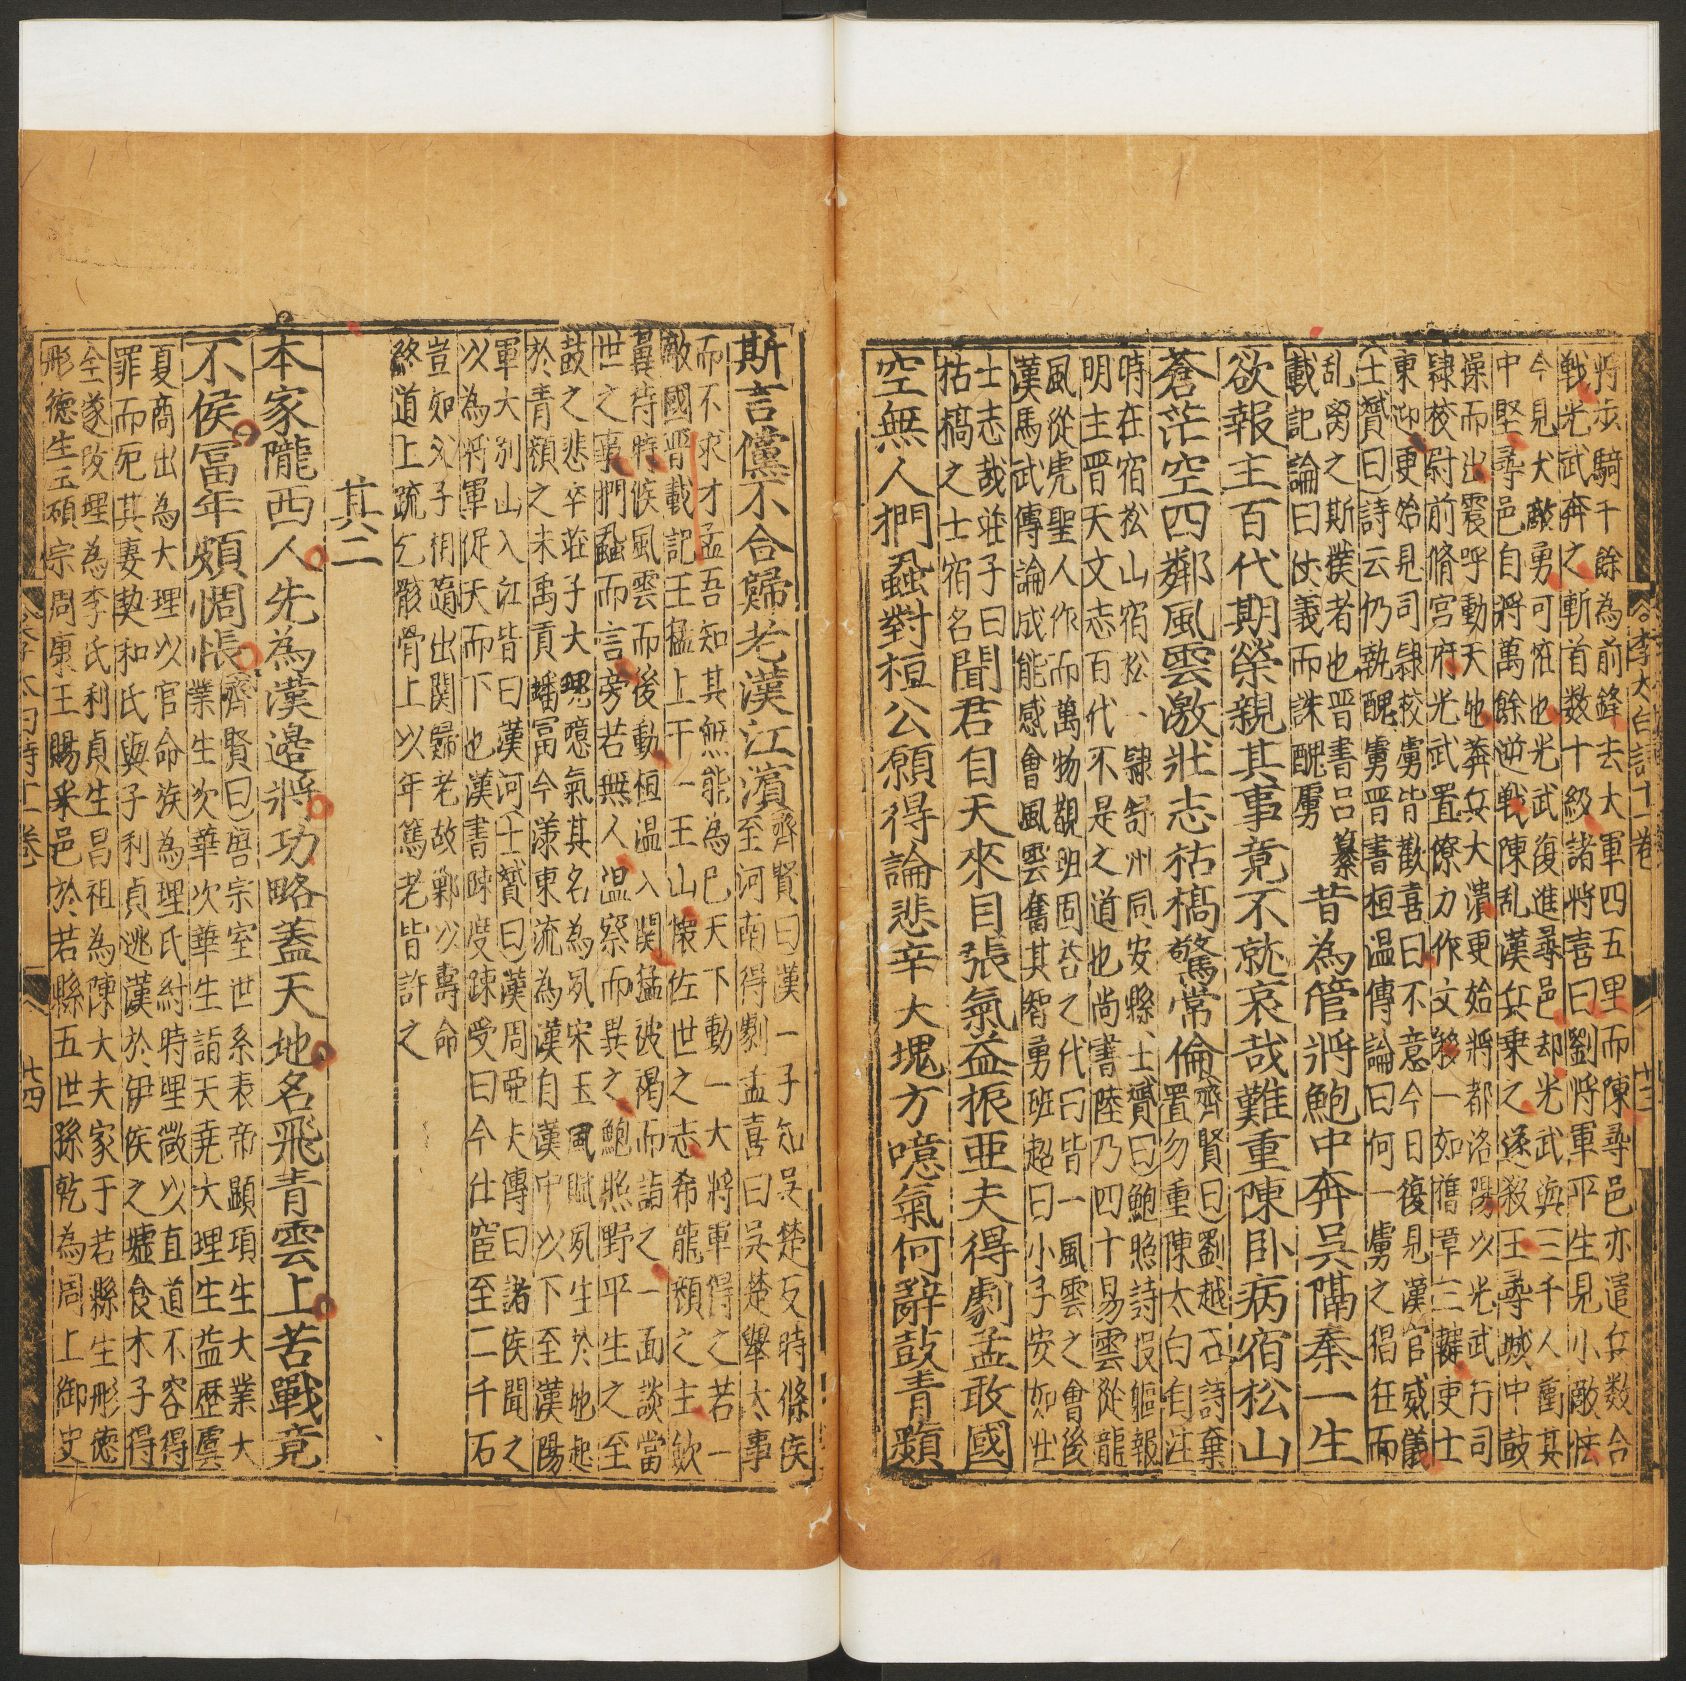 将步騎千餘為前鋒去大軍四五里而陳尋邑亦遣兵数合
戰光武奔之斬首数十級諸將喜曰劉将軍平生見小敵怯
今見大敵勇可怪也光武復進尋邑却光武與三千人衝其
中堅尋邑自將萬餘逆戰陳乱漢兵乗之遂殺王尋城中鼓
操而出震呼動天地莽兵大潰更始將都洛陽以光武行司
隸校尉前脩宮府光武置僚力作文移一如舊章三輔吏士
東迎更始見司隸校虜皆歡喜曰不意今日復見漢官威儀
士贇曰詩云仍執醜虜晋書桓温傳論曰何一虜之倡狂而
乱胬之斯僕者也晋書呂纂
載記論曰仗義而誅醜虜
昔為管將鮑中奔吳隔秦一生
欲報主百代期榮親其事竟不就哀哉難重陳卧病宿松山
蒼茫空四鄰風雲激壯志枯槁驚常倫
齊賢曰劉越石詩棄
置勿重陳太白自注
時在宿松山宿松一隷舒州同安縣士贇曰鮑照詩投軀報
明主晋天文志百代不是之道也尚書陸乃四十易雲從龍
風從虎聖人作而萬物覩班固荅之代曰皆一風雲之會後
漢馬武傳論咸能感會風雲奮其智勇班超曰小子安如壮
士志哉莊子曰
枯槁之士宿名
聞君自天來目張氣益振亜夫得劇孟敢國
空無人捫蝨對桓公願得論悲辛大塊方噫氣何辭鼓青蘋
斯言儻不合歸老漢江濱
齊賢曰漢一子知吳楚反時條侯
至河南得劇孟喜曰吳楚舉太事
而不求才孟吾知其無能為巳天下動一大將軍得之若一
敵國晋載記王猛上干一王山懐佐世之志希龍顔之主歛
翼待時候風雲而後動桓温入関猛被褐而詣之一面談當
世之事捫蝨而言旁若無人温察而異之鮑照野平生之至
鼓之悲卒莊子大塊噫氣其名為夙宋玉風賦夙生於地起
於青蘋之末禹貢嶓冡今漾東流為漢自漢中以下至漢陽
軍大別山入江皆曰漢河士贇曰漢周亞夫傳曰諸侯聞之
以為將軍従天而下也漢書疎受疎受曰今仕宦至二千石
豈如父子相随出関歸老故郷以壽命
終道上疏乞骸骨上以年篤老皆許之
其二
本家隴西人先為漢邉將功略蓋天地名飛青雲上苦戰竟
不侯冨年頗惆悵
齊賢曰唐宗室世系表帝顓項生大業大
業生次華次華生誥天尭大理生益歴虞
夏商出為大理以官命族為理氏紂時理徵以直道不容得
罪而死其妻契和氏與子利貞逃漢於伊侯之墟食木子得
全遂改理為李氏利貞生昌祖為陳大夫家于若縣生彤德
彤德生玉碩宗周康王賜采邑於若縣五世孫乾為周上御史